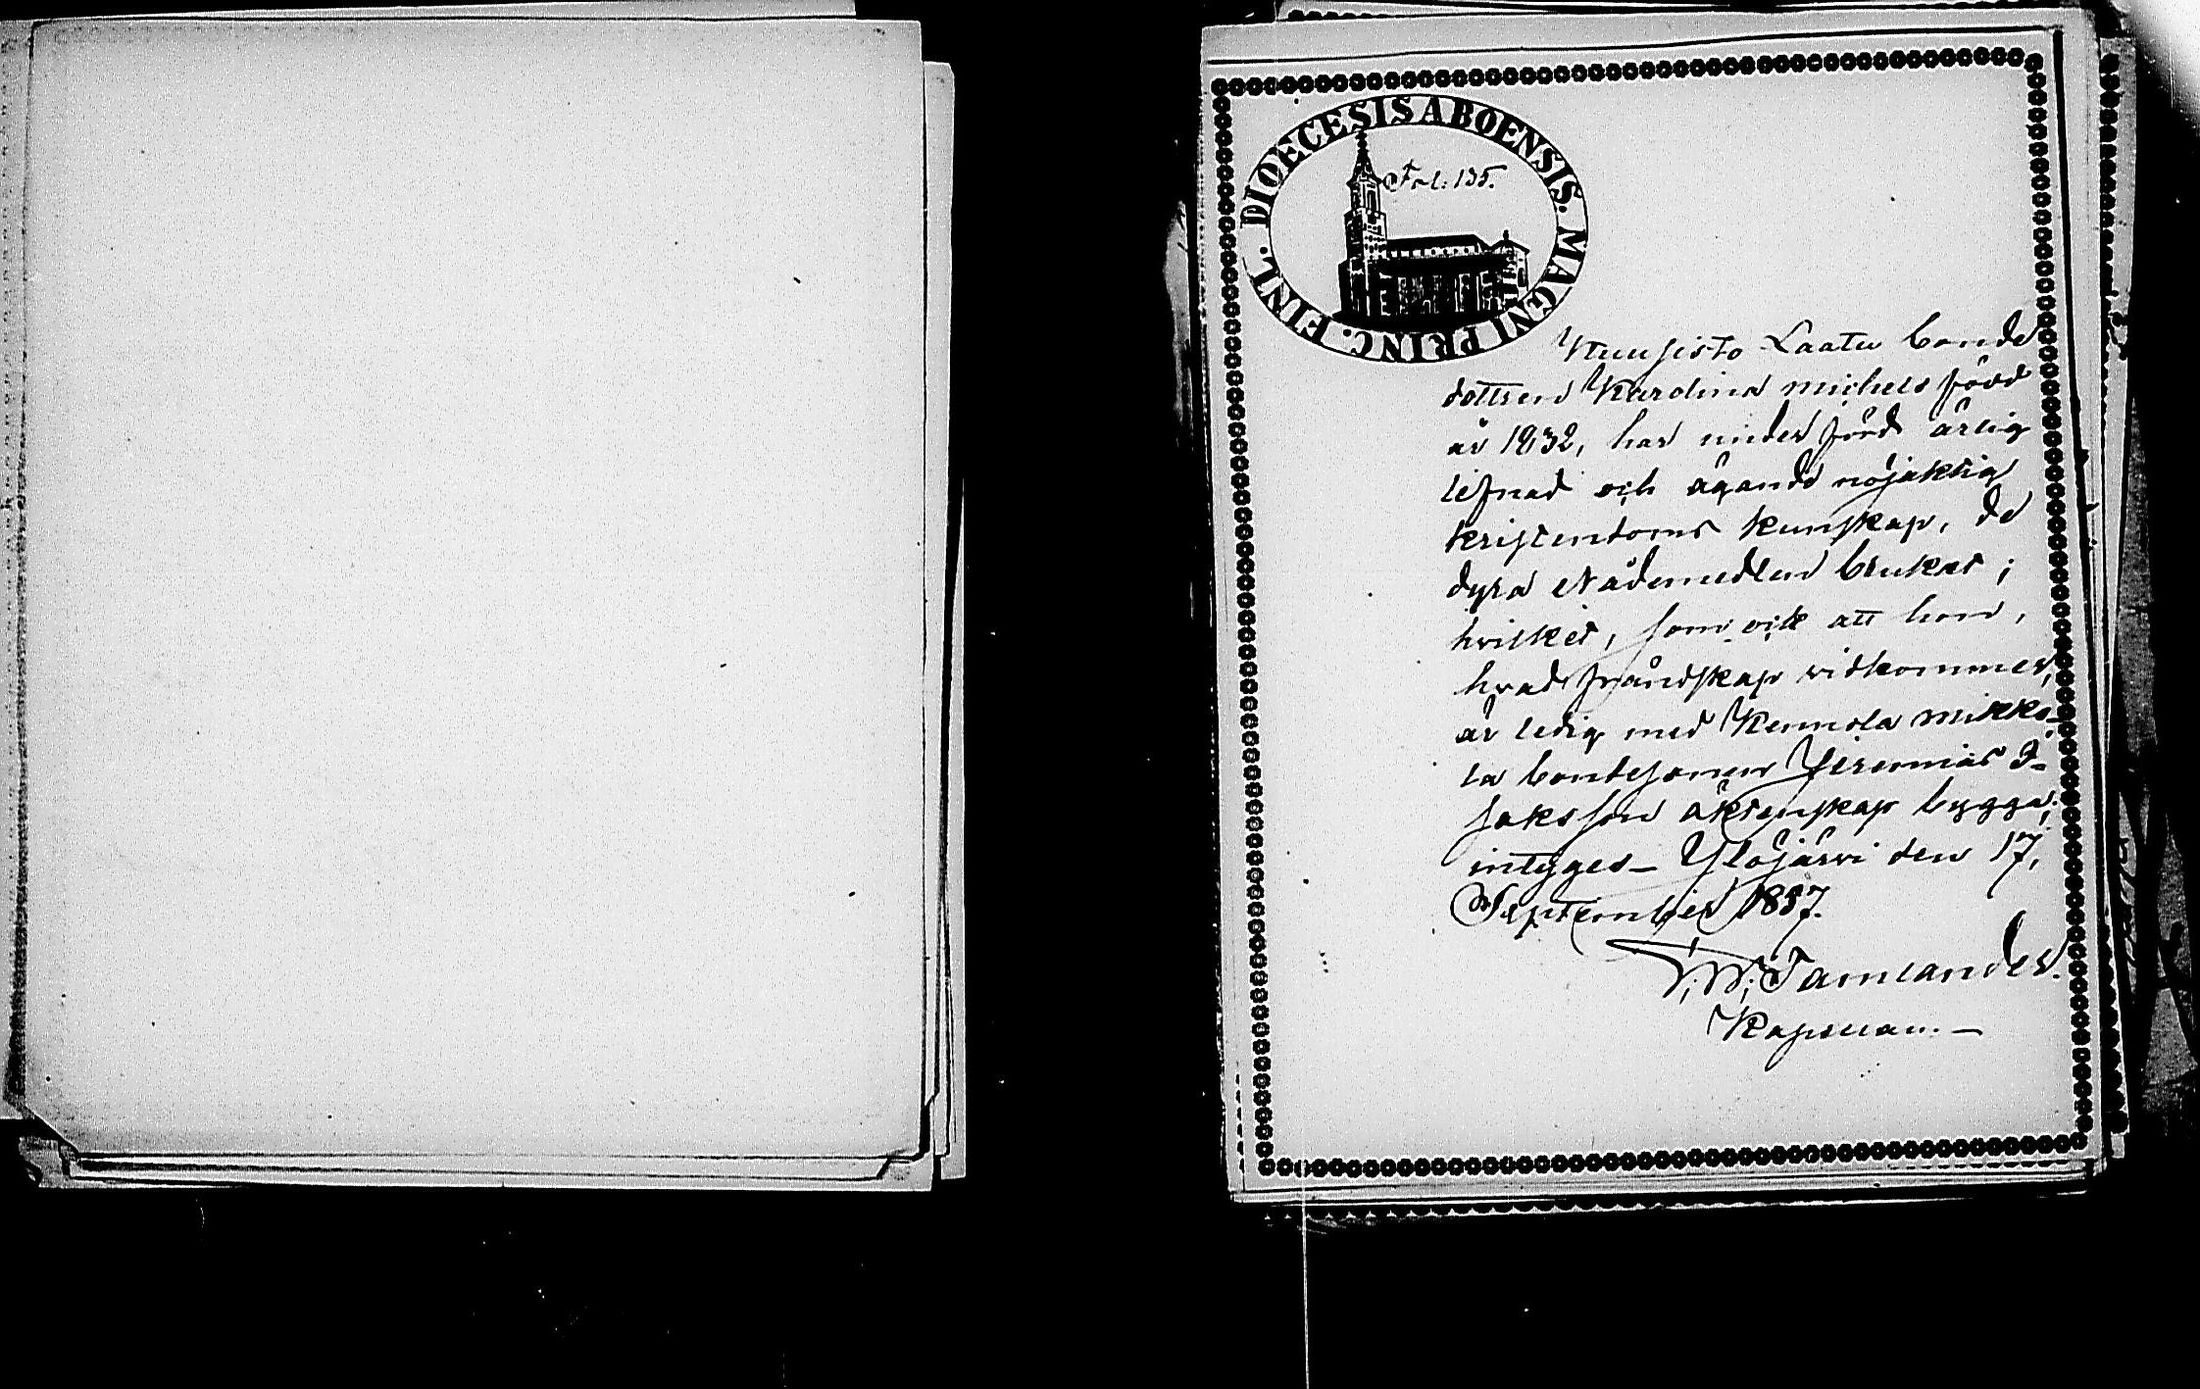 DIOECESIS ABOENSIS. MAGNI PRINC. FINL.
Fol: 135.
Kuusisto Laatu bonde
dottren Karolina Michels född
år 1832, har under förd ärlig
lefnad och ägande nöjaktig
kristendoms kunskap, de
dyra Nådemedlen brukat;
hvilket, som ock att hon,
hvad frändskap vidkommer,
är ledig med Kennola Mikko-
la bondesonen Jeremias I-
saksson äktenskap bygga,
intyges_ Ylöjärvi den 17,
September 1857.
Tamlander.
Kapellan._